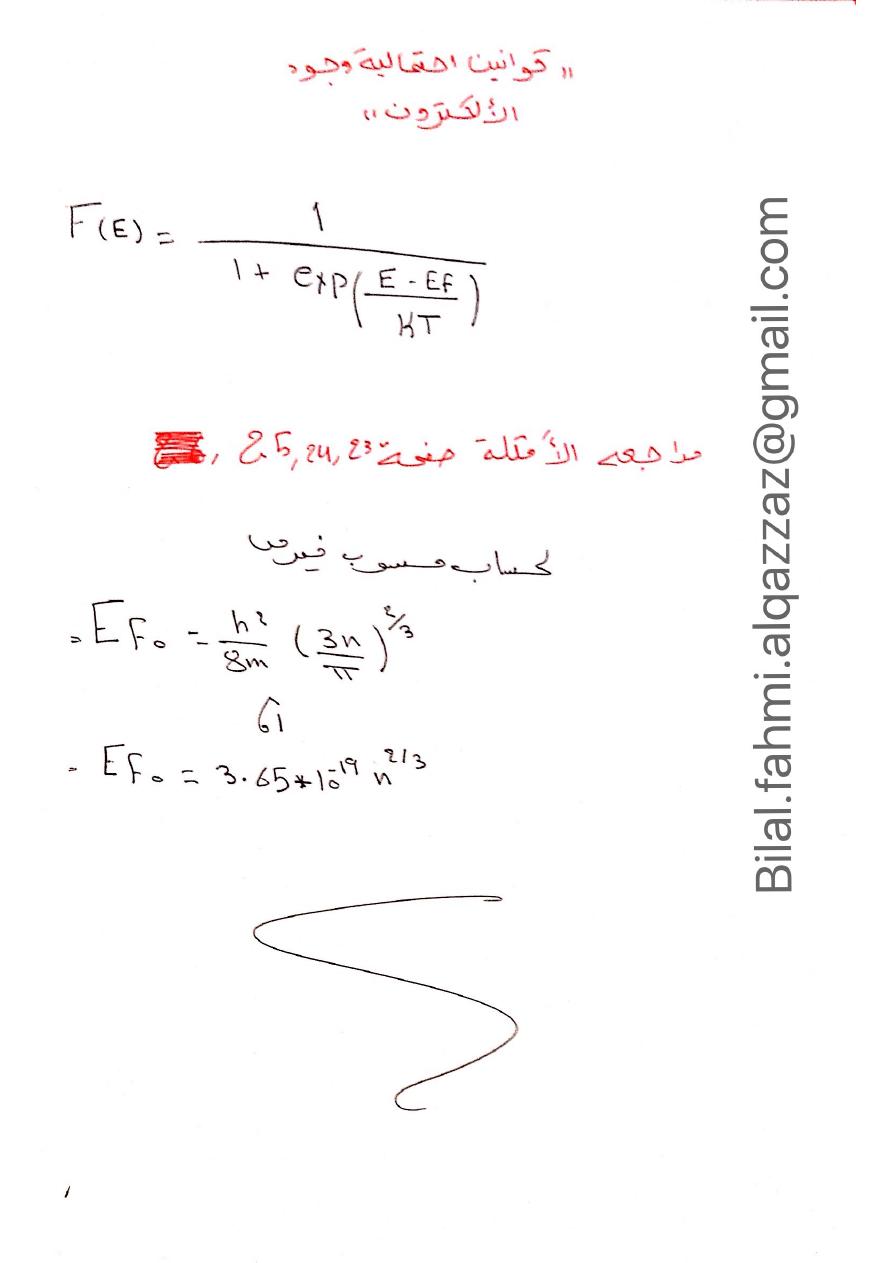 "قوانين احتمالية وجود
الألكترون"
F(E) = 1 / 1 + exp(E - EF / KT)
مراجعه الأمثلة صفحة 23, 24, 25,
لحساب منسوب فيرمي
= EF₀ = h² / 8m (3n / π)^2/3
أو
= EF₀ = 3.65*10^-19 n^2/3
Bilal.fahmi.alqazzaz@gmail.com